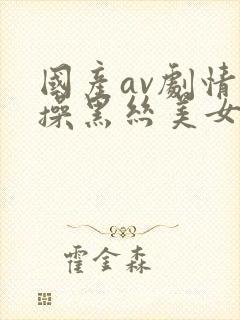 國產av劇情
操黑絲美女
霍金森